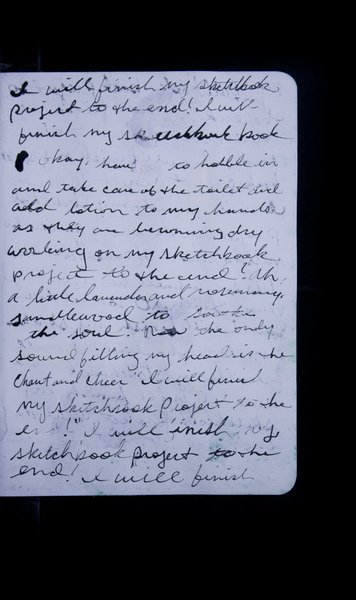 I will finish my sketchbook
project to the end! I will
finish my sketchbook book
Okay, have to hobble in
and take care of the toilet and
add lotion to my hands
as they are becoming dry
working on my sketchbook
project to the end! Ah,
a little lavender and rosemary,
sandlewood to soothe
the soul. Now the only
sound filling my head is the
Chant and cheer "I will finish
my sketchbook project to the
end!" I will finish my
sketchbook project to the
end! I will finish